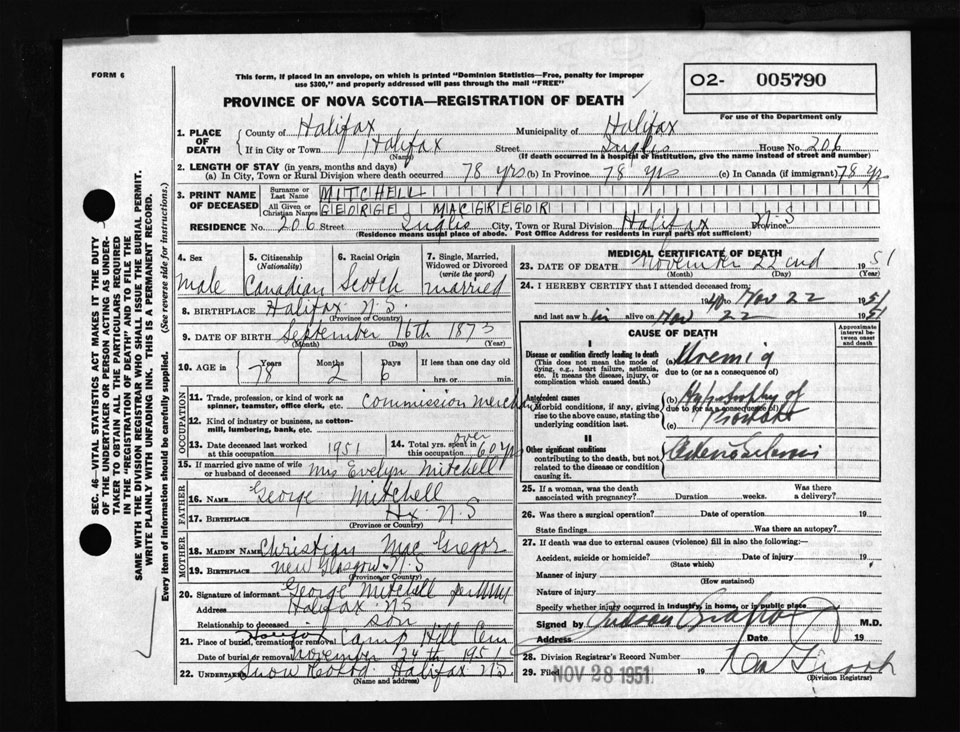 FORM 6
This form, if placed in an envelope, on which is printed "Dominion Statistics—Free, penalty for improper
use $300," and properly addressed will pass through the mail "FREE"
O2- 005790
PROVINCE OF NOVA SCOTIA—REGISTRATION OF DEATH
For use of the Department only
1. PLACE OF DEATH County of Halifax Municipality of Halifax
If in City or Town Halifax Street Inglis House No. 206
(Name) (If death occurred in a hospital or institution, give the name instead of street and number)
2. LENGTH OF STAY (in years, months and days)
(a) In City, Town or Rural Division where death occurred 78 yrs (b) In Province 78 yrs (c) In Canada (if immigrant) 78 yrs
3. PRINT NAME OF DECEASED Surname or Last Name MITCHELL
All Given or Christian Names GEORGE MACGREGOR
RESIDENCE No. 206 Street Inglis City, Town or Rural Division Halifax Province N-S
(Residence means usual place of abode. Post Office Address for residents in rural parts not sufficient)
4. Sex
male
5. Citizenship
(Nationality)
Canadian
6. Racial Origin
Scotch
7. Single, Married, Widowed or Divorced
(write the word)
married
8. BIRTHPLACE Halifax N.S.
(Province or Country)
9. DATE OF BIRTH September 16th 1873
(Month) (Day) (Year)
10. AGE in Years Months Days If less than one day old
78 2 6 hrs. or min.
OCCUPATION
11. Trade, profession, or kind of work as
spinner, teamster, office clerk, etc. Commission Merchant
12. Kind of industry or business, as cotton-
mill, lumbering, bank, etc.
13. Date deceased last worked
at this occupation 1951
14. Total yrs. spent in
this occupation over 60 yrs
15. If married give name of wife
or husband of deceased Mrs Evelyn Mitchell
FATHER
16. NAME George Mitchell
17. BIRTHPLACE Hx N.S
(Province or Country)
MOTHER
18. MAIDEN NAME Christian Mac Gregor
19. BIRTHPLACE New Glasgow N.S
(Province or Country)
20. Signature of informant George Mitchell
Address Halifax NS
Relationship to deceased son
21. Place of burial, cremation or removal Halifax Camp Hill Cem
Date of burial or removal November 24th 1951
22. UNDERTAKER Snow Halifax NS
(Name and address)
MEDICAL CERTIFICATE OF DEATH
23. DATE OF DEATH November 22nd 1951
(Month) (Day)
24. I HEREBY CERTIFY that I attended deceased from:
19 to Nov 22 1951
and last saw h im alive on Nov 22 1951
CAUSE OF DEATH
Approximate interval between onset and death
I
Disease or condition directly leading to death
(This does not mean the mode of
dying, e.g., heart failure, asthenia,
etc. It means the disease, injury, or
complication which caused death.)
(a) Uremia
due to (or as a consequence of)
Antecedent causes
Morbid conditions, if any, giving
rise to the above cause, stating the
underlying condition last.
(b) Hypertrophy of
due to (or as a consequence of)
(c) Prostate
II
Other significant conditions
contributing to the death, but not
related to the disease or condition
causing it.
Arteriosclerosis
25. If a woman, was the death
associated with pregnancy? Duration weeks. Was there
a delivery?
26. Was there a surgical operation? Date of operation 19
State findings Was there an autopsy?
27. If death was due to external causes (violence) fill in also the following:—
Accident, suicide or homicide? Date of injury 19
(State which)
Manner of injury
(How sustained)
Nature of injury
Specify whether injury occurred in industry, in home, or in public place
Signed by Judson M.D.
Address Date 19
28. Division Registrar's Record Number
29. Filed NOV 28 1951 19
(Division Registrar)
SEC. 46—VITAL STATISTICS ACT MAKES IT THE DUTY
OF THE UNDERTAKER OR PERSON ACTING AS UNDER-
TAKER TO OBTAIN ALL THE PARTICULARS REQUIRED
IN THE "REGISTRATION OF DEATH" AND TO FILE THE
SAME WITH THE DIVISION REGISTRAR WHO SHALL ISSUE THE BURIAL PERMIT.
WRITE PLAINLY WITH UNFADING INK. THIS IS A PERMANENT RECORD.
Every item of information should be carefully supplied. (See reverse side for instructions.)